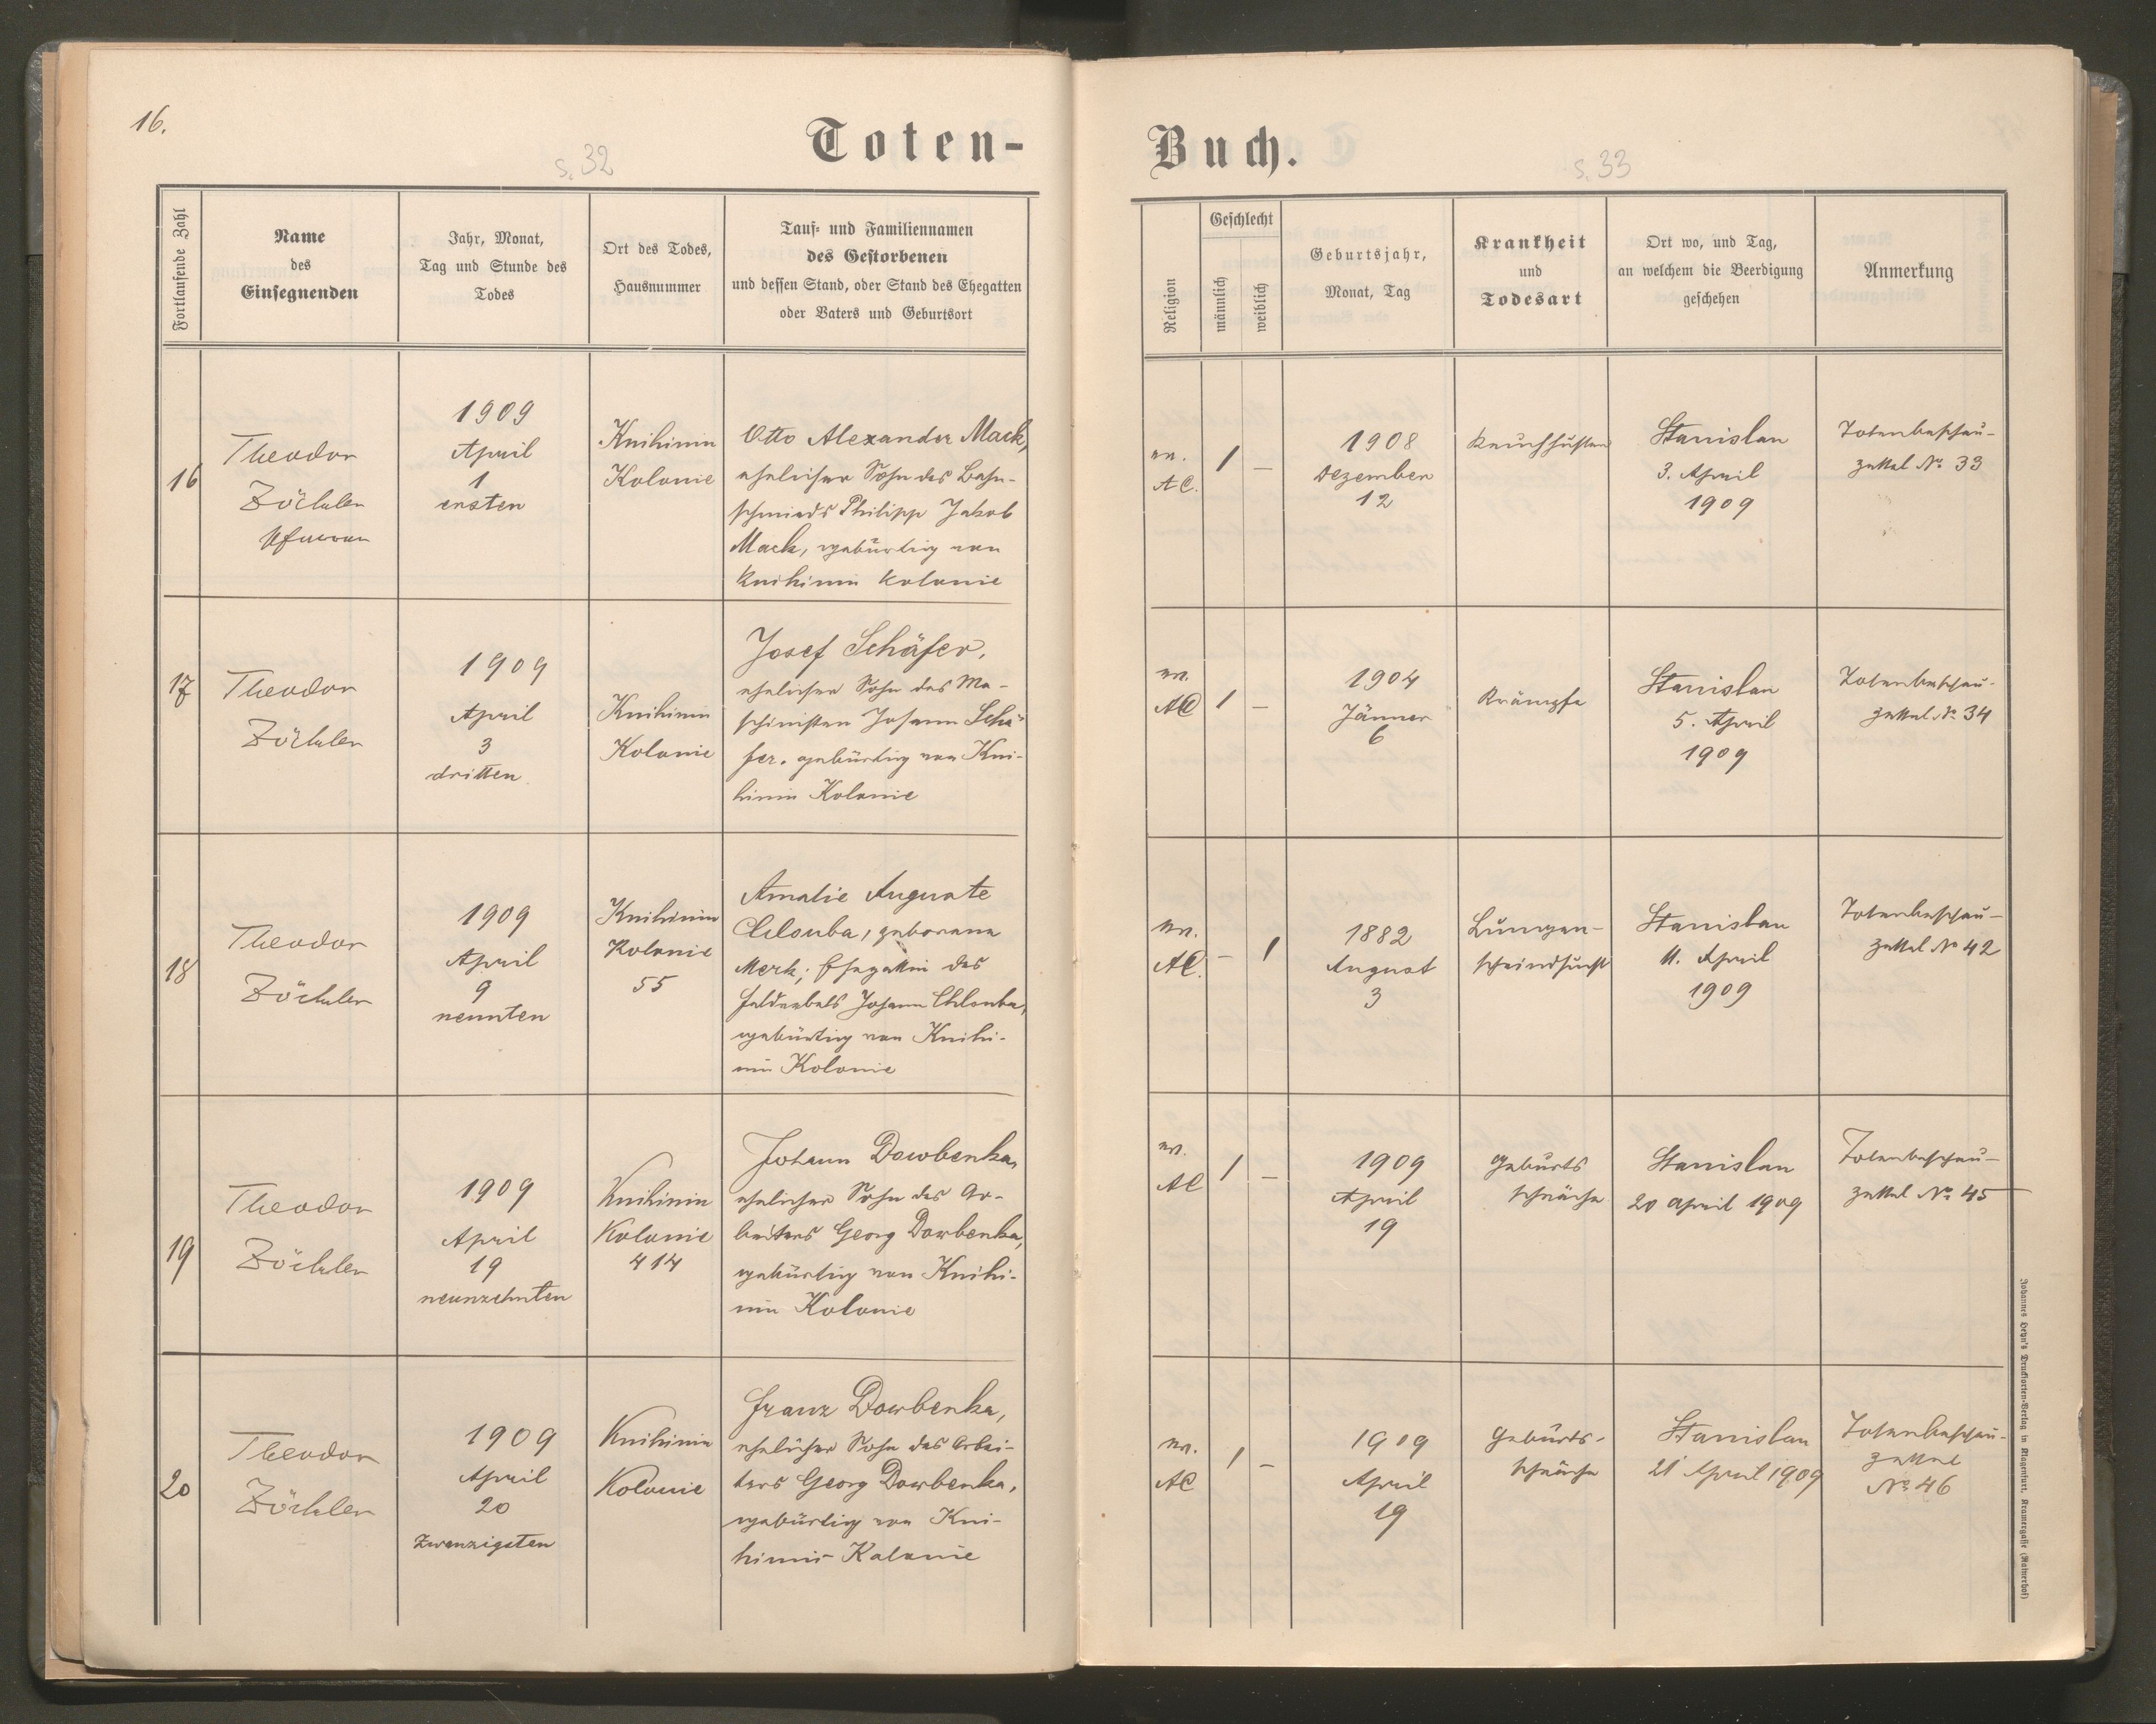 16.
s. 32
Toten-
Fortlaufende Zahl
Name
des
Einsegnenden
Jahr, Monat,
Tag und Stunde des
Todes
Ort des Todes,
Hausnummer
Tauf- und Familiennamen
des Gestorbenen
und dessen Stand, oder Stand des Ehegatten
oder Vaters und Geburtsort
16
Theodor
Zöckler
Pfarrer
1909
April
1
ersten
Knihinin
Kolonie
Otto Alexander Mack,
ehelicher Sohn des Bahn-
schmieds Philipp Jakob
Mack, gebürtig von
Knihinin Kolonie
17
Theodor
Zöckler
1909
April
3
dritten
Knihinin
Kolonie
Josef Schäfer,
ehelicher Sohn des Ma-
schinisten Johann Schä-
fer, gebürtig von Kni-
hinin Kolonie
18
Theodor
Zöckler
1909
April
9
neunten
Knihinin
Kolonie
55
Amalie Auguste
Chlouba, geborene
Merk; Ehegattin des
Johann Chlouba,
gebürtig von Knihi-
nin Kolonie
19
Theodor
Zöckler
1909
April
19
neunzehnten
Knihinin
Kolonie
414
Johann Dowbenka,
ehelicher Sohn des Ar-
beiters Georg Dowbenka,
gebürtig von Knihi-
nin Kolonie
20
Theodor
Zöckler
1909
April
20
zwanzigsten
Knihinin
Kolonie
Franz Dowbenka,
ehelicher Sohn des Arbei-
ters Georg Dowbenka,
gebürtig von Kni-
hinin Kolonie
Buch.
s. 33
Religion
Geschlecht
männlich
weiblich
Geburtsjahr,
Monat, Tag
Krankheit
und
Todesart
Ort wo, und Tag,
an welchem die Beerdigung
geschehen
Anmerkung
ev.
AC.
1
—
1908
Dezember
12
Keuchhusten
Stanislau
3. April
1909
Totenbeschau-
zettel No 33
ev.
AC
1
—
1904
Jänner
6
Krämpfe
Stanislau
5. April
1909
Totenbeschau-
zettel No 34
ev.
AC.
—
1
1882
August
3
Lungen-
schwindsucht
Stanislau
11. April
1909
Totenbeschau-
zettel No 42
ev.
AC
1
—
1909
April
19
Geburts
schwäche
Stanislau
20 April 1909
Totenbeschau-
zettel No 45
ev.
AC
1
—
1909
April
19
Geburts-
schwäche
Stanislau
21 April 1909
Totenbeschau-
zettel
No 46
Johannes Heyn's Drucksorten-Verlag in Klagenfurt, Kramergasse (Rainerhof)